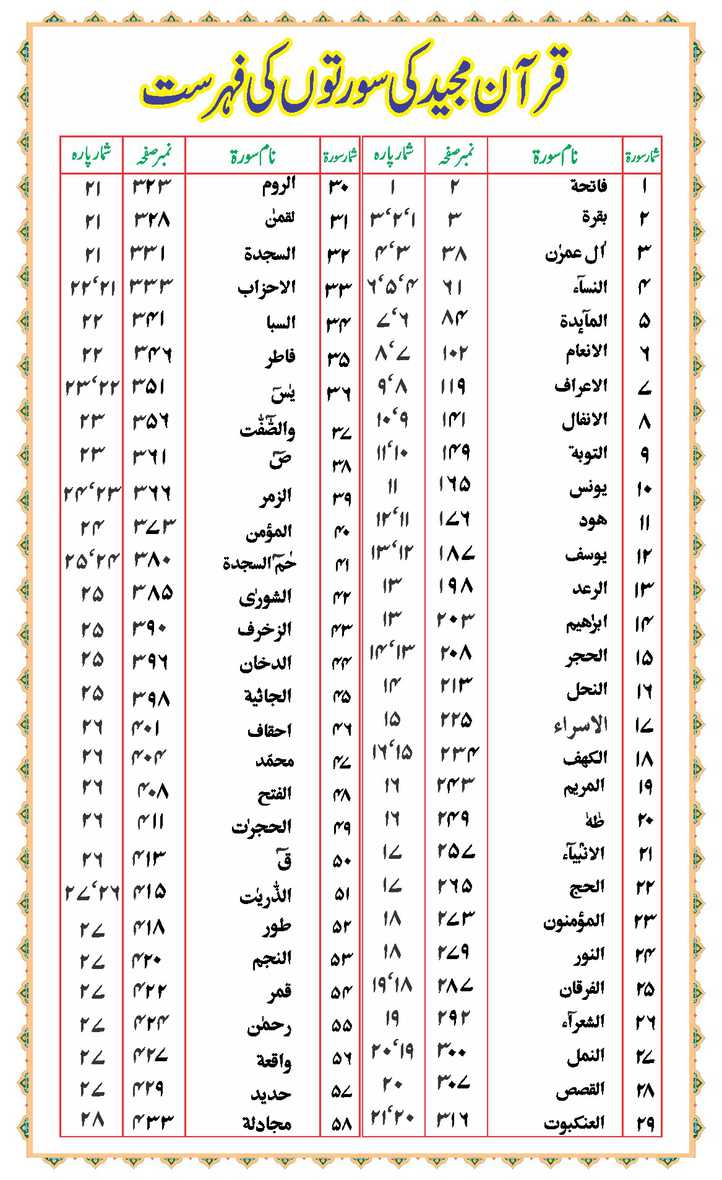 قرآن مجید کی سورتوں کی فہرست
شمارسورۃ نام سورۃ نمبر صفحہ شمار پارہ شمارسورۃ نام سورۃ نمبر صفحہ شمار پارہ
۱ فاتحة ۲ ۱ ۳۰ الروم ۳۲۳ ۲۱
۲ بقرة ۳ ۱،۲،۳ ۳۱ لقمٰن ۳۲۸ ۲۱
۳ اٰل عمرٰن ۳۸ ۳،۴ ۳۲ السجدة ۳۳۱ ۲۱
۴ النسآء ۶۱ ۴،۵،۶ ۳۳ الاحزاب ۳۳۳ ۲۱،۲۲
۵ المآئدة ۸۴ ۶،۷ ۳۴ السبا ۳۴۱ ۲۲
۶ الانعام ۱۰۲ ۷،۸ ۳۵ فاطر ۳۴۶ ۲۲
۷ الاعراف ۱۱۹ ۸،۹ ۳۶ يٰسٓ ۳۵۱ ۲۲،۲۳
۸ الانفال ۱۴۱ ۹،۱۰ ۳۷ والصّٰٓفّٰت ۳۵۶ ۲۳
۹ التوبة ۱۴۹ ۱۰،۱۱ ۳۸ صٓ ۳۶۱ ۲۳
۱۰ يونس ۱۶۵ ۱۱ ۳۹ الزمر ۳۶۶ ۲۳،۲۴
۱۱ هود ۱۷۶ ۱۱،۱۲ ۴۰ المؤمن ۳۷۳ ۲۴
۱۲ يوسف ۱۸۷ ۱۲،۱۳ ۴۱ حٰمٓ السجدة ۳۸۰ ۲۴،۲۵
۱۳ الرعد ۱۹۸ ۱۳ ۴۲ الشورٰى ۳۸۵ ۲۵
۱۴ ابرٰهيم ۲۰۳ ۱۳ ۴۳ الزخرف ۳۹۰ ۲۵
۱۵ الحجر ۲۰۸ ۱۳،۱۴ ۴۴ الدخان ۳۹۶ ۲۵
۱۶ النحل ۲۱۳ ۱۴ ۴۵ الجاثية ۳۹۸ ۲۵
۱۷ الاسراء ۲۲۵ ۱۵ ۴۶ احقاف ۴۰۱ ۲۶
۱۸ الكهف ۲۳۴ ۱۵،۱۶ ۴۷ محمّد ۴۰۴ ۲۶
۱۹ المريم ۲۴۳ ۱۶ ۴۸ الفتح ۴۰۸ ۲۶
۲۰ طٰهٰ ۲۴۹ ۱۶ ۴۹ الحجرٰت ۴۱۱ ۲۶
۲۱ الانبيآء ۲۵۷ ۱۷ ۵۰ قٓ ۴۱۳ ۲۶
۲۲ الحج ۲۶۵ ۱۷ ۵۱ الذّٰريٰت ۴۱۵ ۲۶،۲۷
۲۳ المؤمنون ۲۷۳ ۱۸ ۵۲ طور ۴۱۸ ۲۷
۲۴ النور ۲۷۹ ۱۸ ۵۳ النجم ۴۲۰ ۲۷
۲۵ الفرقان ۲۸۷ ۱۸،۱۹ ۵۴ قمر ۴۲۲ ۲۷
۲۶ الشعرآء ۲۹۲ ۱۹ ۵۵ رحمٰن ۴۲۴ ۲۷
۲۷ النمل ۳۰۰ ۱۹،۲۰ ۵۶ واقعة ۴۲۷ ۲۷
۲۸ القصص ۳۰۷ ۲۰ ۵۷ حديد ۴۲۹ ۲۷
۲۹ العنكبوت ۳۱۶ ۲۰،۲۱ ۵۸ مجادلة ۴۳۳ ۲۸